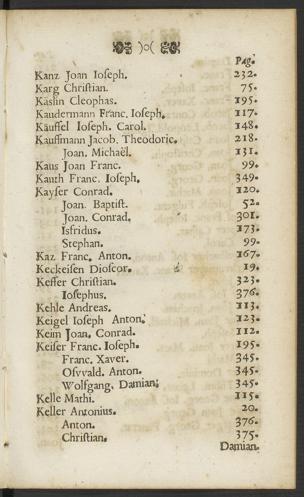 )o(
Pag.
Kanz Joan Ioseph. 232.
Karg Christian. 75.
Käslin Cleophas. 195.
Kaudermann Franc. Ioseph. 117.
Käuffel Ioseph. Carol. 148.
Kauffmann Jacob. Theodoric. 218.
Joan. Michaël. 131.
Kaus Joan Franc. 99.
Kauth Franc. Ioseph. 349.
Kayser Conrad. 120.
Joan. Baptist. 52.
Joan. Conrad. 301.
Isfridus. 173.
Stephan. 99.
Kaz Franc. Anton. 167.
Keckeisen Dioscor. 19.
Keffer Christian. 323.
Iosephus. 376.
Kehle Andreas. 113.
Keigel Ioseph Anton. 123.
Keim Joan. Conrad. 112.
Keiser Franc. Ioseph. 195.
Franc. Xaver. 345.
Osvvald. Anton. 345.
Wolfgang. Damian. 345.
Kelle Mathi. 115.
Keller Antonius. 20.
Anton. 376.
Christian. 375.
Damian.